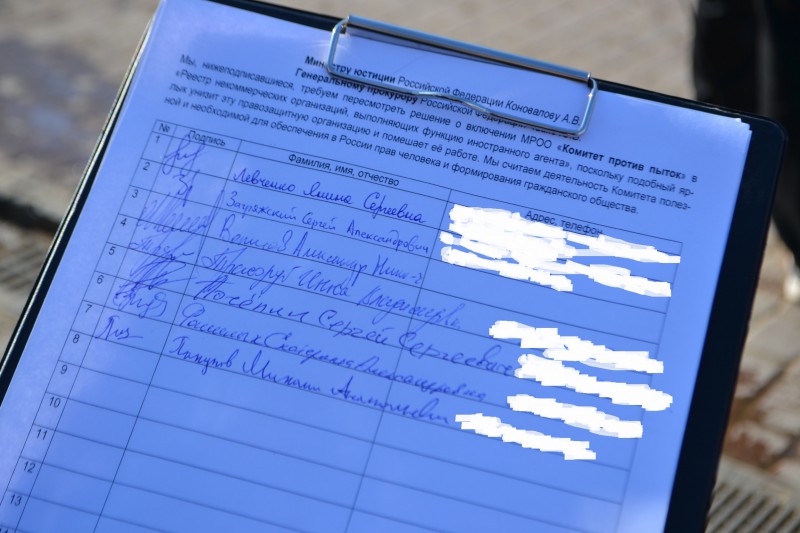 Министру юстиции Российской Федерации Коновалову А.В.
Генеральному прокурору Российской
Мы, нижеподписавшиеся, требуем пересмотреть решение о включении МРОО «Комитет против пыток» в
«Реестр некоммерческих организаций, выполняющих функцию иностранного агента», поскольку подобный яр-
лык унизит эту правозащитную организацию и помешает её работе. Мы считаем деятельность Комитета полез-
ной и необходимой для обеспечения в России прав человека и формирования гражданского общества.
№ Подпись Фамилия, имя, отчество Адрес, телефон
1 Левченко Янина Сергеевна
2 Сергей Александрович
3 Александр
4 Инна
5 Сергей Сергеевич
6 Екатерина Александровна
7 Михаил Анатольевич
8
9
10
11
12
13